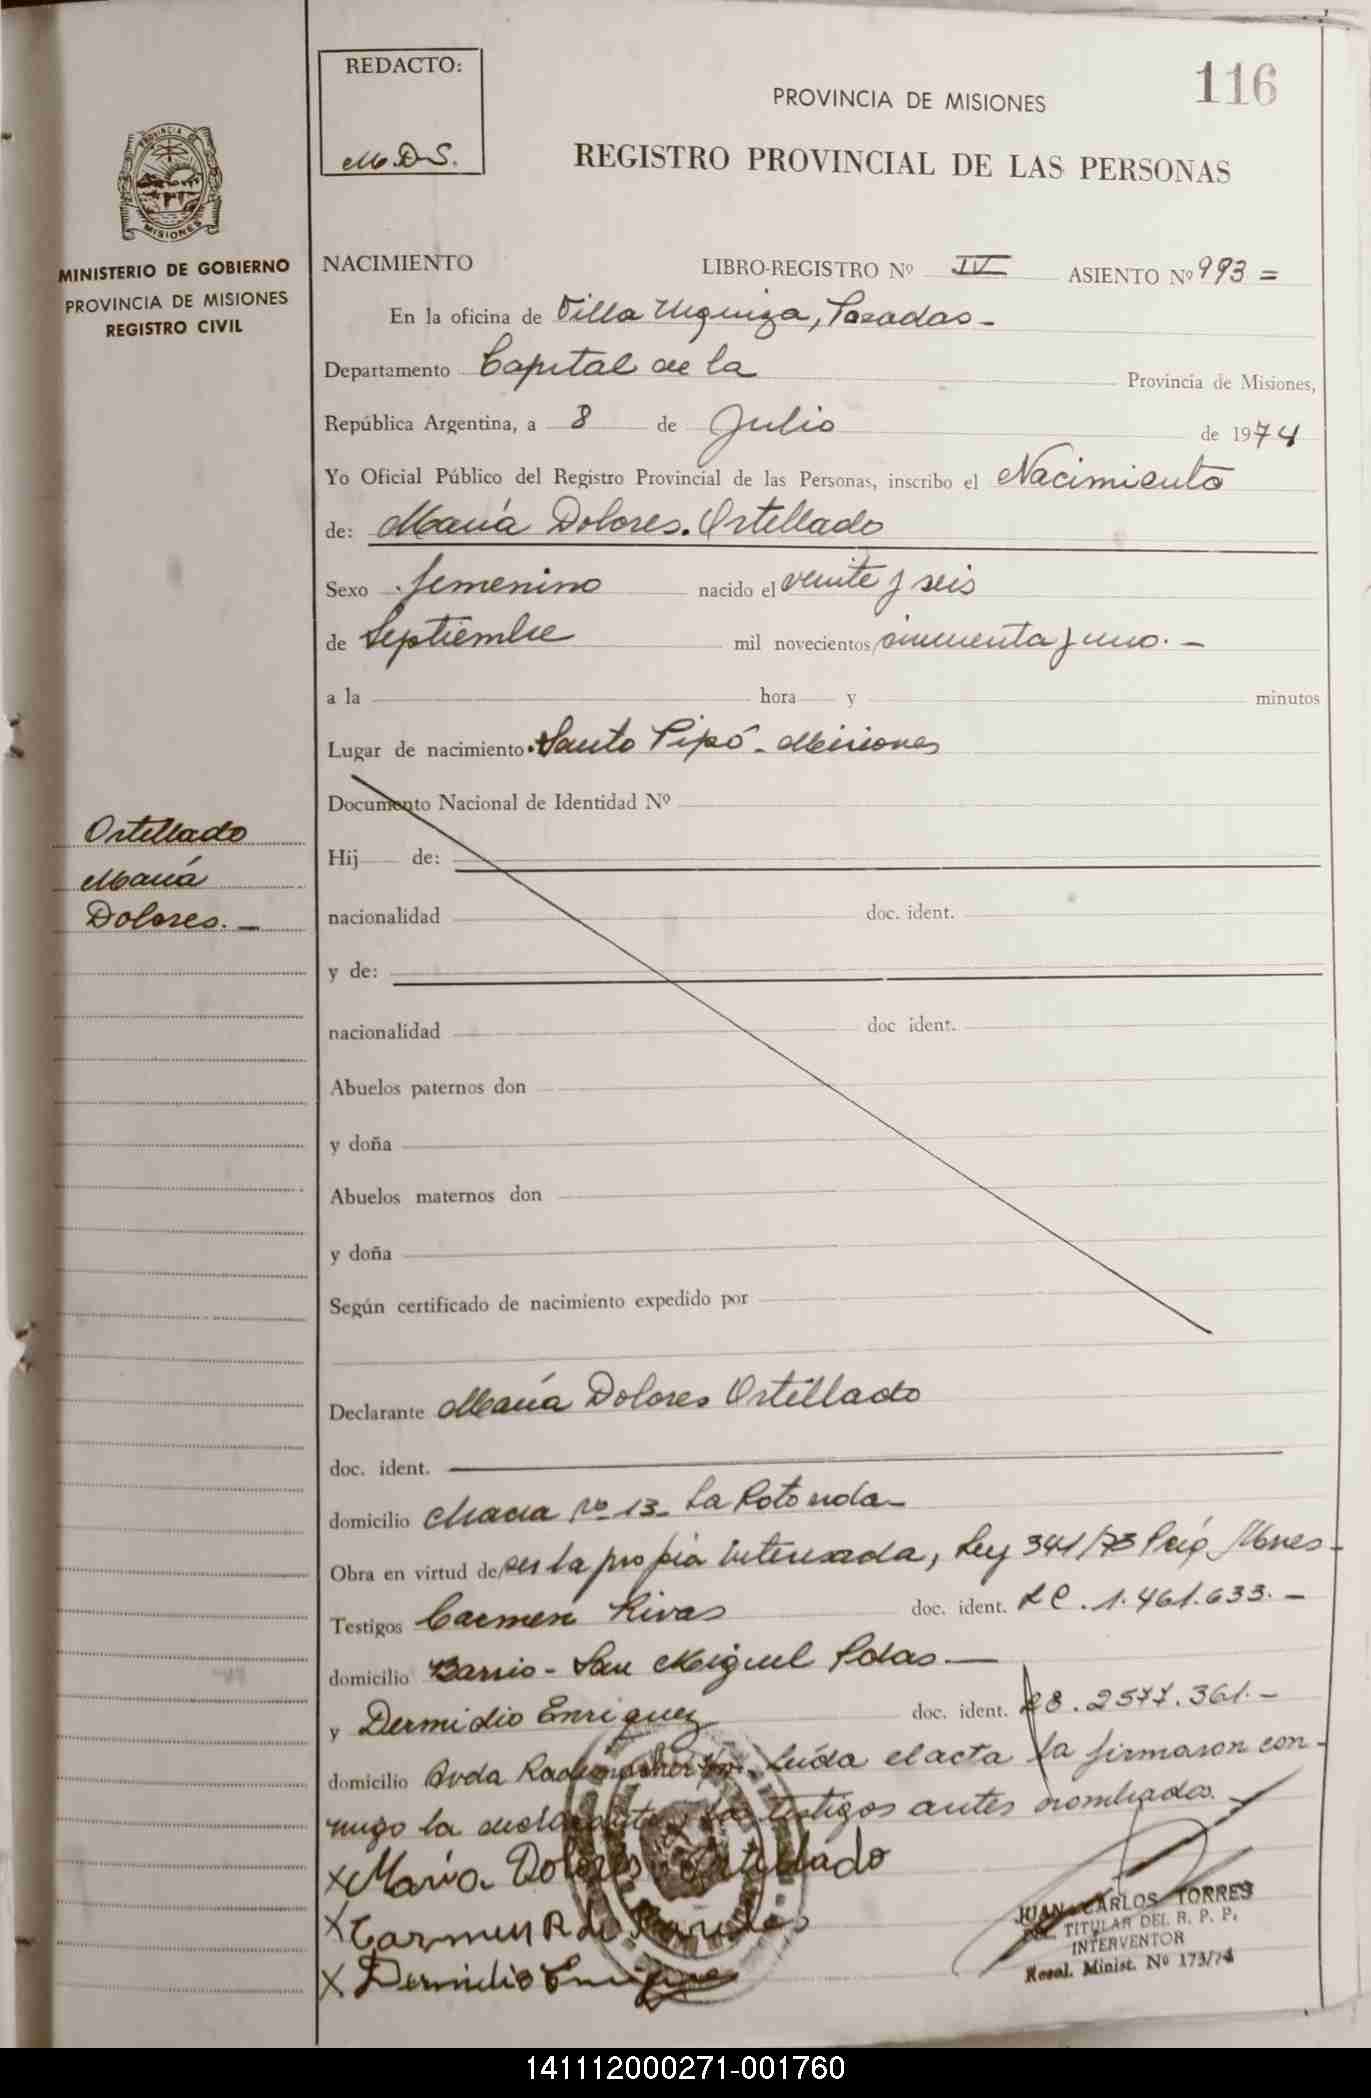 REDACTO:
M.D.S.
PROVINCIA DE MISIONES
116
REGISTRO PROVINCIAL DE LAS PERSONAS
PROVINCIA DE
MISIONES
MINISTERIO DE GOBIERNO
PROVINCIA DE MISIONES
REGISTRO CIVIL
NACIMIENTO LIBRO-REGISTRO Nº IV ASIENTO Nº 993 =
En la oficina de Villa Urquiza, Posadas -
Departamento Capital de la Provincia de Misiones,
República Argentina, a 8 de Julio de 1974
Yo Oficial Público del Registro Provincial de las Personas, inscribo el Nacimiento
de: María Dolores. Ortellado
Sexo femenino nacido el veinte y seis
de Septiembre mil novecientos cincuenta y uno. -
a la hora y minutos
Lugar de nacimiento Santo Pipó - Misiones
Documento Nacional de Identidad Nº
Hij de:
nacionalidad doc. ident.
y de:
nacionalidad doc ident.
Abuelos paternos don
y doña
Abuelos maternos don
y doña
Según certificado de nacimiento expedido por
Ortellado
María
Dolores. -
Declarante María Dolores Ortellado
doc. ident.
domicilio Chacra Nº 13 - La Rotonda -
Obra en virtud de ser la propia interesada, Ley 341/73
Testigos Carmen Rivas doc. ident. LC. 1.461.633. -
domicilio Barrio - San Miguel Pdas -
y Dermidio Enriquez doc. ident. 2577.361. -
domicilio Avda Rademacher Leída el acta la firmaron con-
migo la declarante y los testigos antes nombrados.
X María Dolores Ortellado
X Carmen R de
X Dermidio Enriquez
JUAN CARLOS TORRES
TITULAR DEL R. P. P.
INTERVENTOR
Resol. Minist. Nº 173/74
141112000271-001760